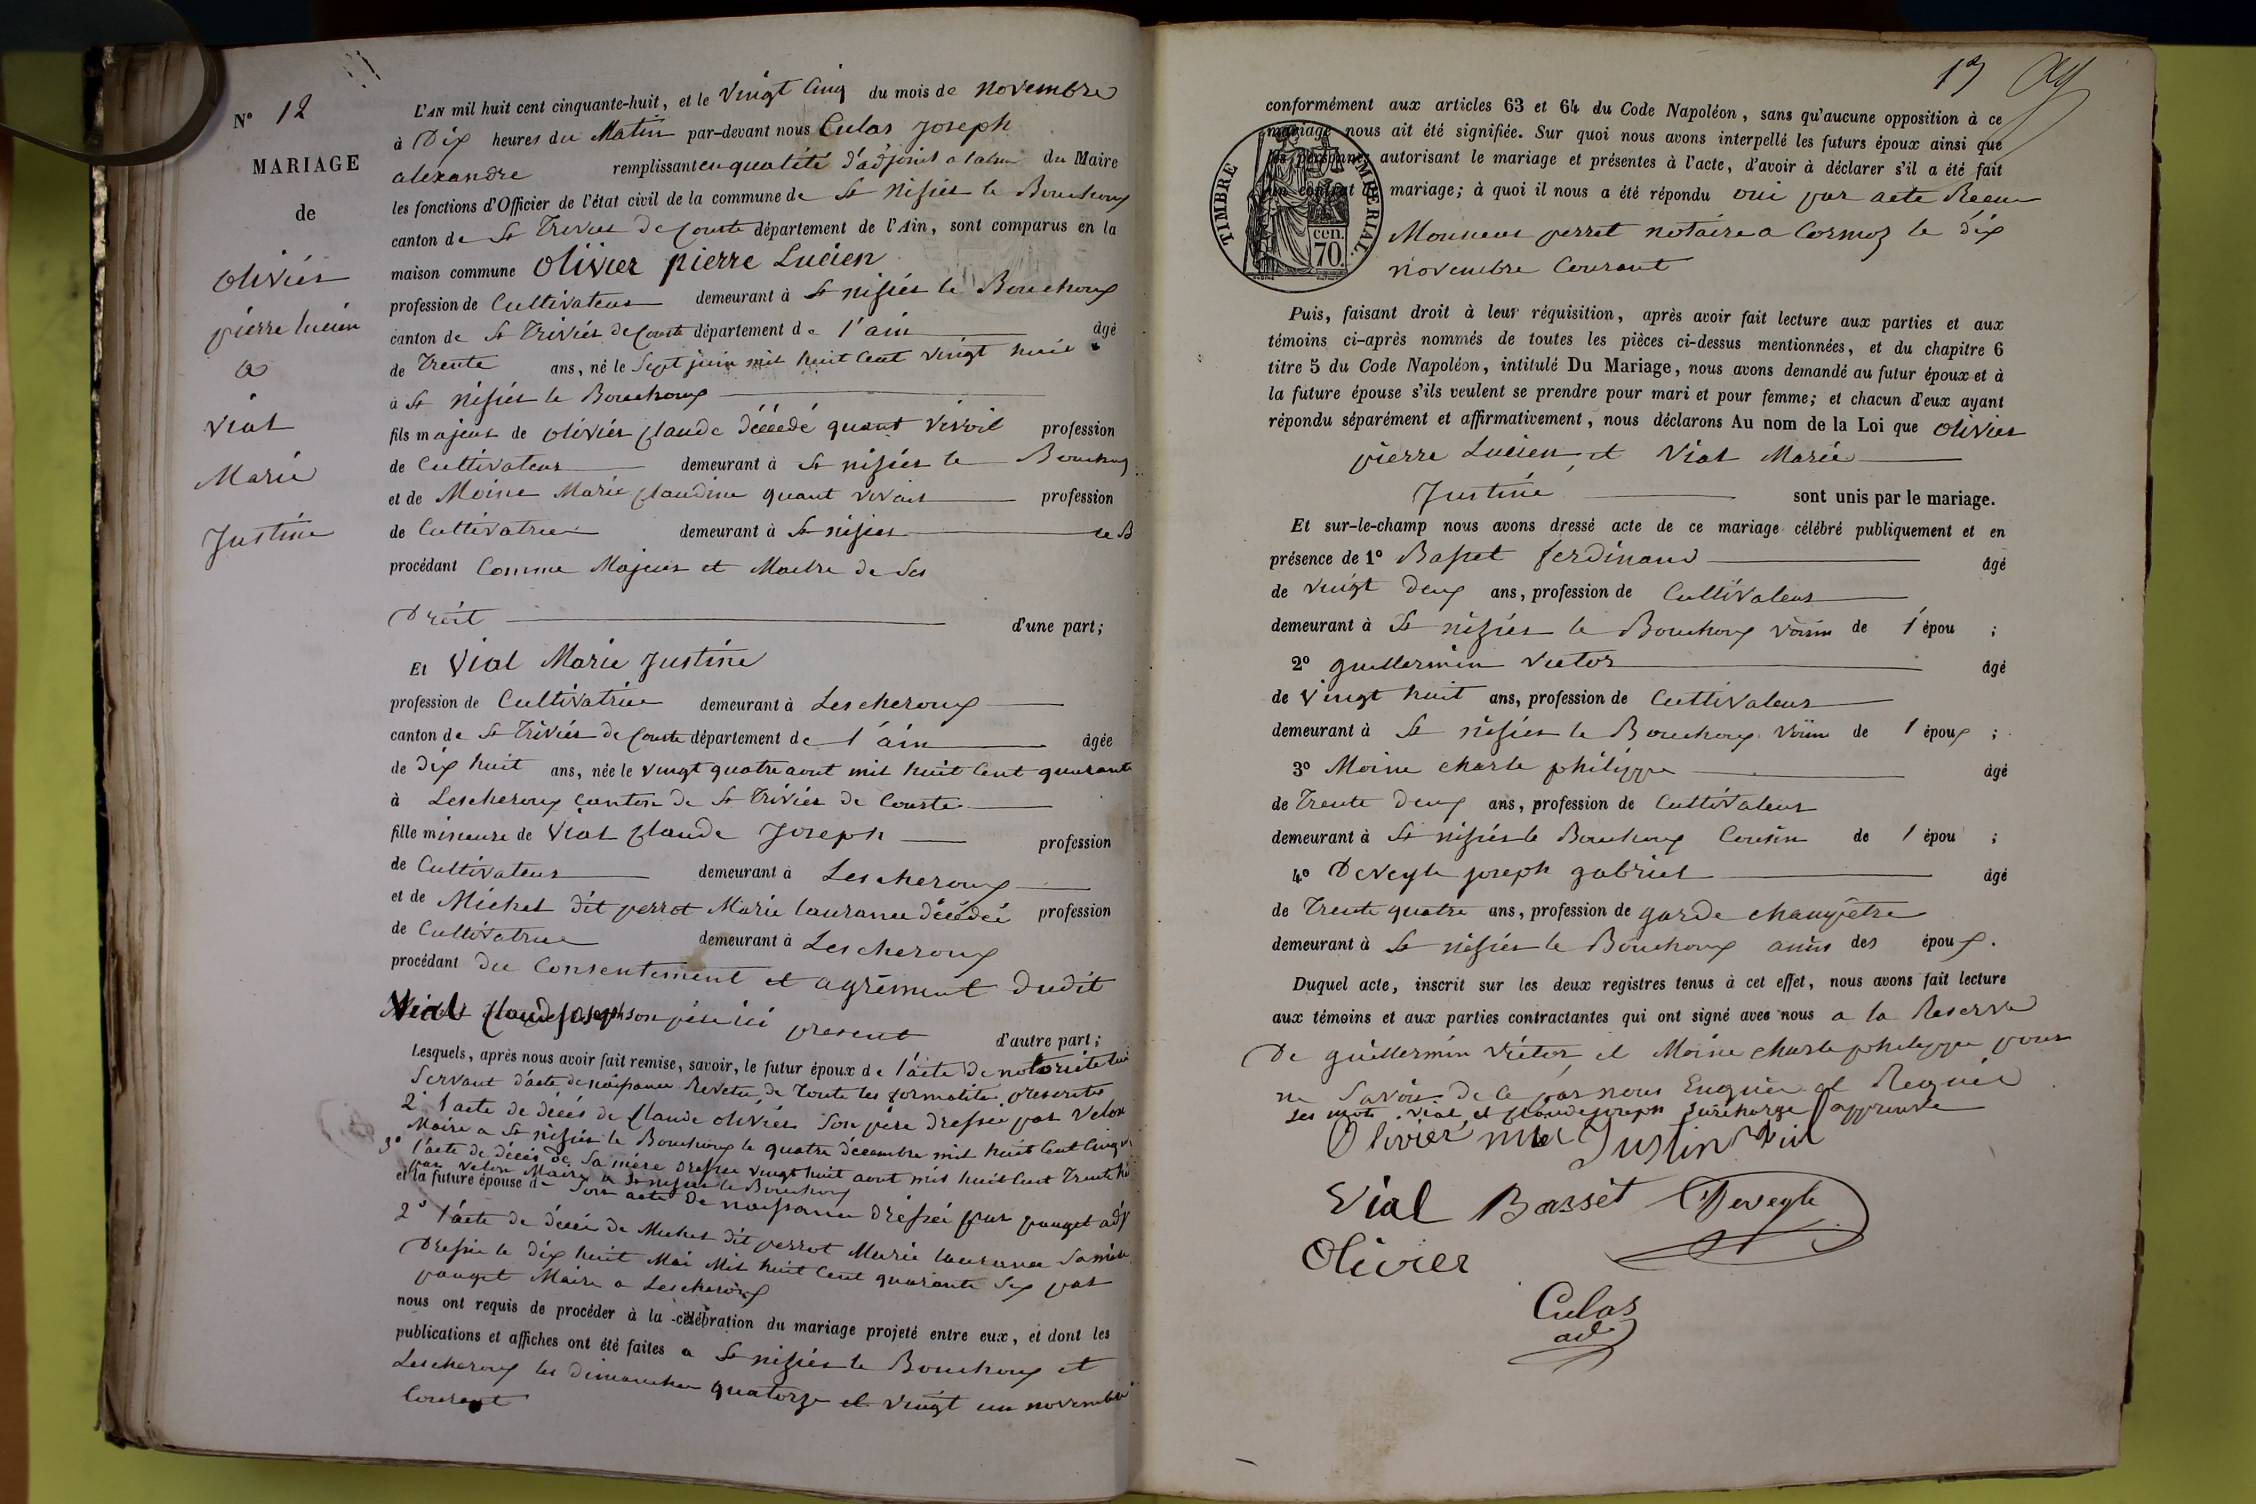 N° 12
MARIAGE
de
olivier
pierre lucien
a
vial
Marie
Justine
L'AN mil huit cent cinquante-huit, et le vingt cinq du mois de novembre
à Dix heures du Matin par-devant nous Culas Joseph
alexandre remplissant en qualité d'adjoint du Maire
les fonctions d'Officier de l'état civil de la commune de St nisier le Bouchoux
canton de St Trivier de Courte département de l'Ain, sont comparus en la
maison commune olivier pierre Lucien
profession de Cultivateur demeurant à St nisier le Bouchoux
canton de St Trivier de Courte département de l'ain âgé
de Trente ans, né le Sept juin mil huit cent vingt huit
à St nisier le Bouchoux
fils majeur de olivier claude décédé quant vivoit profession
de Cultivateur demeurant à St nisier le Bouchoux
et de Moine Marie claudine quant vivait profession
de Cultivatrice demeurant à St nisier le B
procédant Comme Majeur et Maitre de Ses
Droit d'une part;
Et Vial Marie Justine
profession de Cultivatrice demeurant à Lescheroux
canton de St Trivier de Courte département de l'ain âgée
de dix huit ans, née le vingt quatre aout mil huit cent quarante
à Lescheroux canton de St Trivier de Courte
fille mineure de Vial claude Joseph profession
de Cultivateur demeurant à Lescheroux
et de Michel dit perrot Marie laurance décédée profession
de Cultivatrice demeurant à Lescheroux
procédant du Consentement et agrément dudit
Vial claude joseph son père ici present d'autre part;
Lesquels, après nous avoir fait remise, savoir, le futur époux de l'acte de notoriété lui
Servant d'acte de naissance Revetu de Toute les formalités prescrites
2° l'acte de décés de Claude olivier Son père dressée par Velon
Maire a St nisier le Bouchoux le quatre décembre mil huit cent cinq
3° l'acte de décés de Sa mère dressée vingt huit aout mil huit cent Trente
par Velon Maire a St nisier le Bouchoux
et la future épouse de Son acte de naissance dressée par pouget adj
2° l'acte de décés de Michel dit perrot Marie laurance Sa mère
Dressée le dix huit Mai Mil huit cent quarante Six par
pouget Maire a Lescheroux
nous ont requis de procéder à la célébration du mariage projeté entre eux, et dont les
publications et affiches ont été faites a St nisier le Bouchoux et
Lescheroux les dimanches quatorze et vingt un novembre
Courant
13
conformément aux articles 63 et 64 du Code Napoléon, sans qu'aucune opposition à ce
mariage nous ait été signifiée. Sur quoi nous avons interpellé les futurs époux ainsi que
les personnes autorisant le mariage et présentes à l'acte, d'avoir à déclarer s'il a été fait
un contrat de mariage; à quoi il nous a été répondu oui par acte Recu
TIMBRE IMPERIAL.
cen.
70.
Monsieur perret notaire a Cormoz le dix
novembre Courant
Puis, faisant droit à leur réquisition, après avoir fait lecture aux parties et aux
témoins ci-après nommés de toutes les pièces ci-dessus mentionnées, et du chapitre 6
titre 5 du Code Napoléon, intitulé Du Mariage, nous avons demandé au futur époux et à
la future épouse s'ils veulent se prendre pour mari et pour femme; et chacun d'eux ayant
répondu séparément et affirmativement, nous déclarons Au nom de la Loi que olivier
pierre Lucien et Vial Marie
Justine sont unis par le mariage.
Et sur-le-champ nous avons dressé acte de ce mariage célébré publiquement et en
présence de 1° Basset ferdinand âgé
de vingt deux ans, profession de Cultivateur
demeurant à St nizier le Bouchoux voisin de l'épou ;
2° guillermin victor âgé
de vingt huit ans, profession de Cultivateur
demeurant à St nisier le Bouchoux voisin de l'époux ;
3° Moine charle philippe âgé
de Trente deux ans, profession de Cultivateur
demeurant à St nisier le Bouchoux Cousin de l'épou ;
4° Deveyle joseph gabriel âgé
de Trente quatre ans, profession de garde champêtre
demeurant à St nisier le Bouchoux amis des époux.
Duquel acte, inscrit sur les deux registres tenus à cet effet, nous avons fait lecture
aux témoins et aux parties contractantes qui ont signé avec nous a la Reserve
De guillermin victor et Moine charle philippe pour
ne Savoir de ce par nous Enquis et Requis
Les mots Vial et claude joseph Surcharge approuvée
Olivier Justin Vial
Vial Basset Deveyle
Olivier
Culas
adj